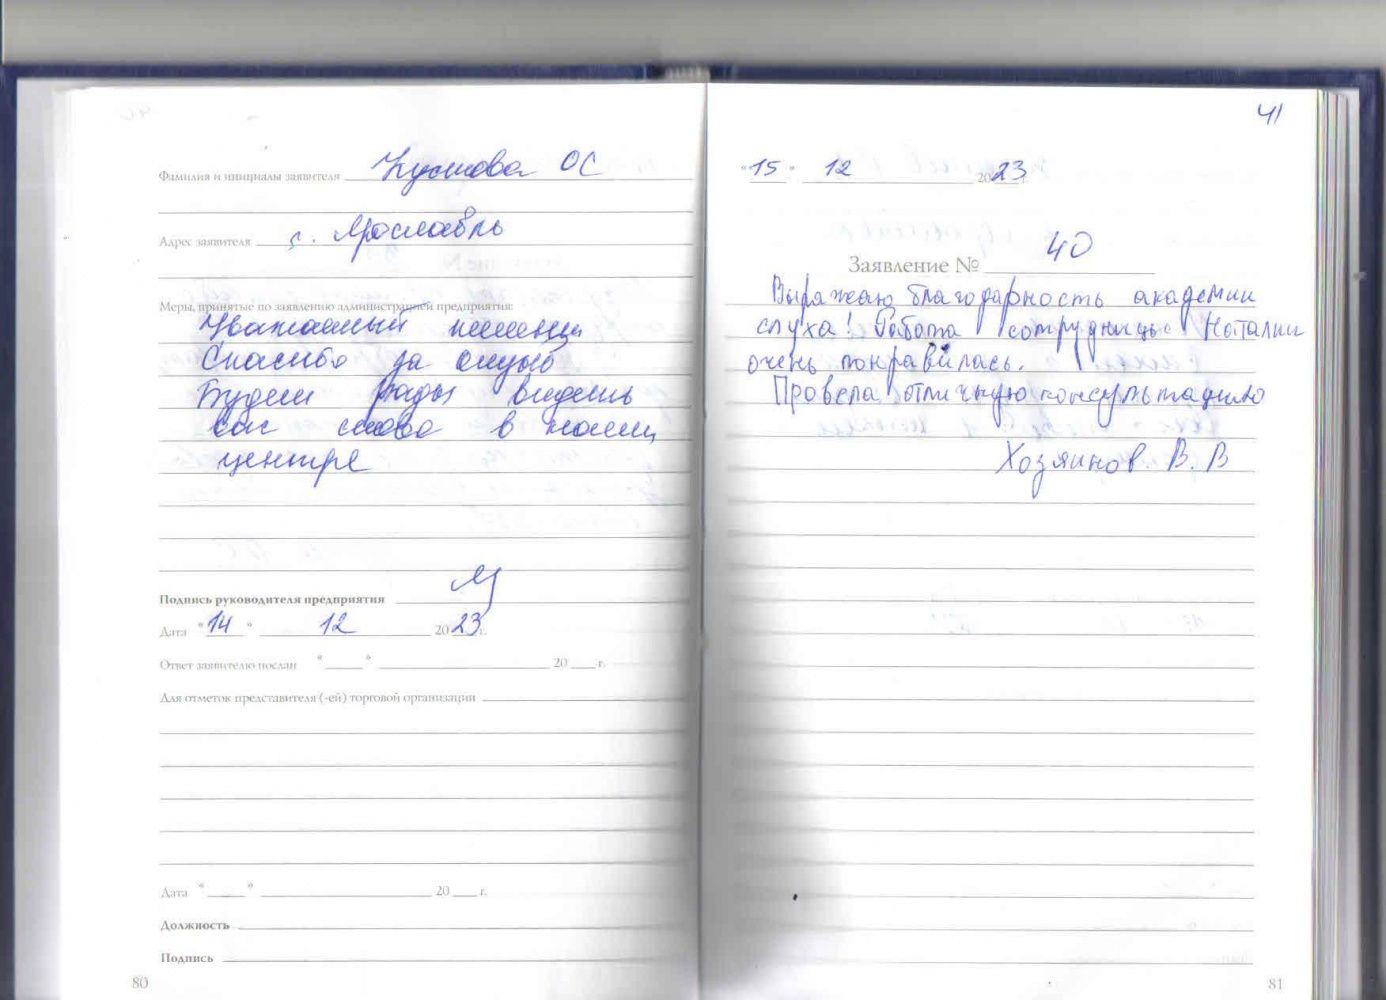 Фамилия и инициалы заявителя Кустова ОС
Адрес заявителя г. Ярославль
Меры, принятые по заявлению администрацией предприятия:
Уважаемый клиент
Спасибо за отзыв
Будем рады видеть
вас снова в нашем
центре
Подпись руководителя предприятия
Дата "14" 12 2023г.
Ответ заявителю послан "___" ___ 20 ___ г.
Для отметок представителя (-ей) торговой организации
Дата "___" ___ 20 ___ г.
Должность
Подпись
80
41
"15" 12 2023
Заявление № 40
Выражаю благодарность академии
слуха! Работа сотрудницы Наталии
очень понравилась.
Провела отличную консультацию
Хозяинов В. В
81